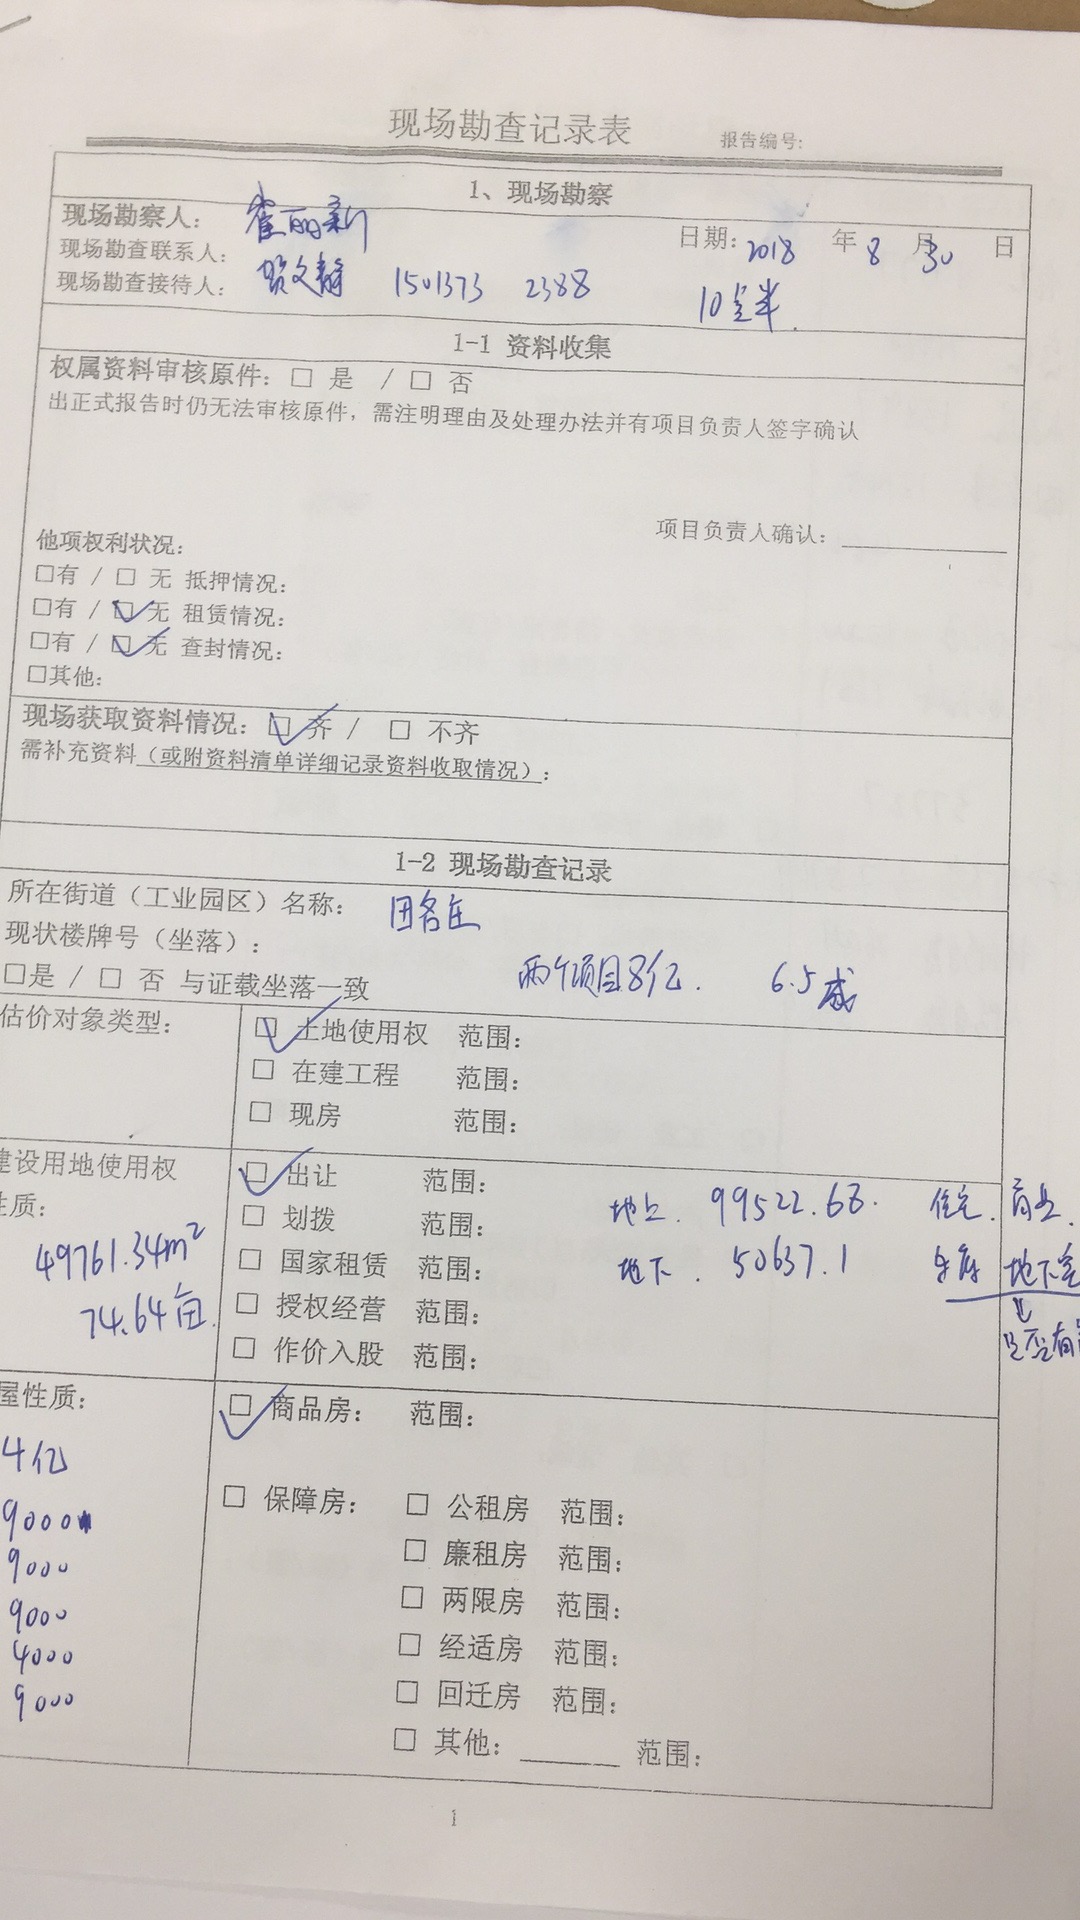 现场勘查记录表 报告编号:
1、现场勘察
现场勘察人: 崔丽新 日期: 2018 年 8 月 30 日
现场勘查联系人:
现场勘查接待人: 贺文静 1501373 2388 10点半.
1-1 资料收集
权属资料审核原件: □ 是 / □ 否
出正式报告时仍无法审核原件, 需注明理由及处理办法并有项目负责人签字确认
项目负责人确认:
他项权利状况:
□有 / □ 无 抵押情况:
□有 / ☑ 无 租赁情况:
□有 / ☑ 无 查封情况:
□其他:
现场获取资料情况: ☑ 齐 / □ 不齐
需补充资料(或附资料清单详细记录资料收取情况):
1-2 现场勘查记录
所在街道(工业园区)名称: 田各庄
现状楼牌号(坐落):
□是 / □ 否 与证载坐落一致 两个项目8亿. 6.5成
估价对象类型: ☑ 土地使用权 范围:
□ 在建工程 范围:
□ 现房 范围:
建设用地使用权 ☑ 出让 范围:
性质: 地上. 99522.68. 住宅. 商业.
□ 划拨 范围:
49761.34m² □ 国家租赁 范围: 地下. 50637.1 车库 地下室
74.64亩. □ 授权经营 范围: 是否有
□ 作价入股 范围:
屋性质: ☑ 商品房: 范围:
4亿
9000 □ 保障房: □ 公租房 范围:
9000 □ 廉租房 范围:
9000 □ 两限房 范围:
4000 □ 经适房 范围:
9000 □ 回迁房 范围:
□ 其他: 范围:
1